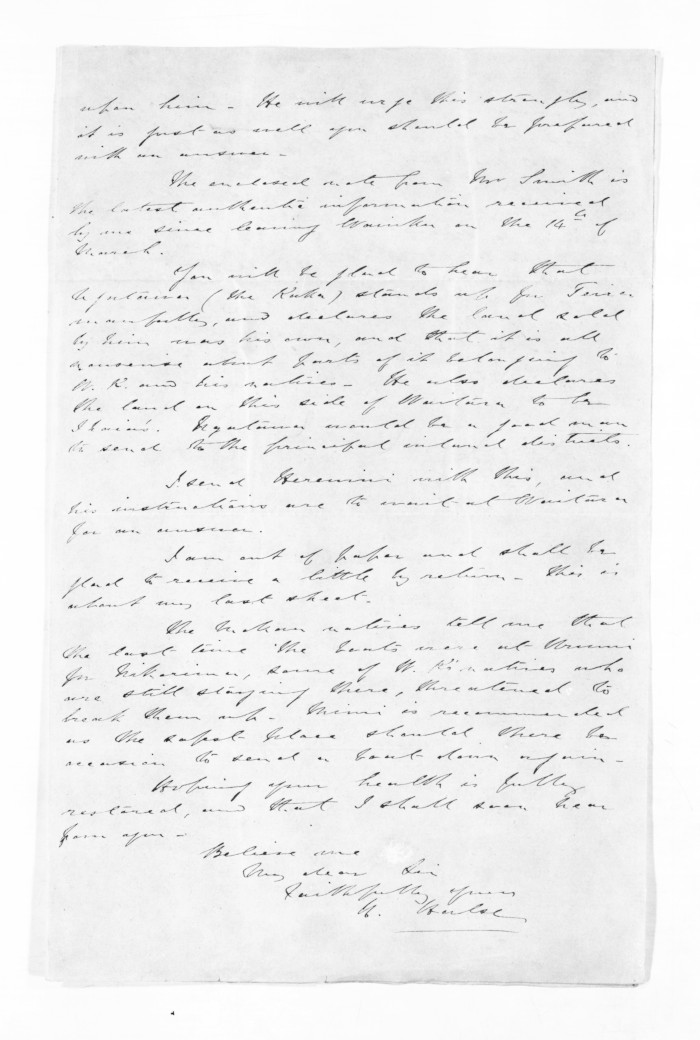 upon him - He will urge this strongly, and
it is just as well you should be prepared
with an answer -
The enclosed note from Mr Smith is
the latest authentic information received
by me since leaving Waireka on the 14th of
March.
You will be glad to hear that
Ngatairwa (the Kuka) stands up for Teira
manfully, and declares the land sold
by him was his own, and that it is all
nonsense about parts of it belonging to
W. K. and his natives - He also declares
the land on this side of Waitara to be
Ihaia's. Ngatairwa would be a good man
to send to the principal inland districts.
I send Heremini with this, and
his instructions are to wait at Waitara
for an answer.
I am out of paper and shall be
glad to receive a little by return - this is
about my last sheet.
The Mokau natives tell me that
the last time the boats were at Urenui
for some of W. K's natives who
are still staying there, threatened to
break them up - Mimi is recommended
as the safest place should there be
occasion to send a boat down again -
Hoping your health is fully
restored, and that I shall soon hear
from you -
Believe me
My dear Sir
Faithfully yours
H. Halse